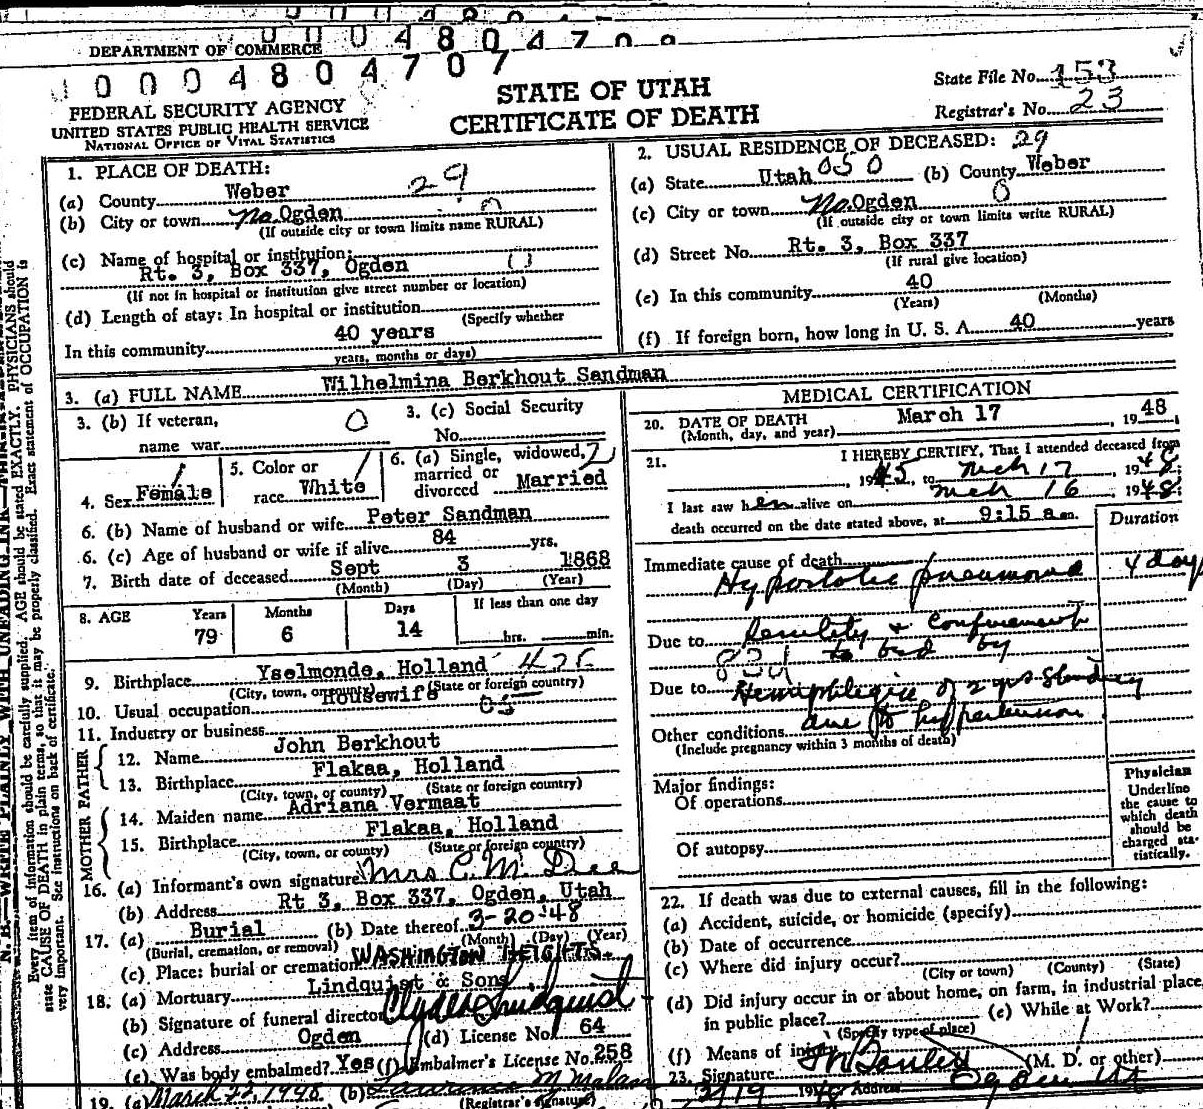 DEPARTMENT OF COMMERCE
0004804707
FEDERAL SECURITY AGENCY
UNITED STATES PUBLIC HEALTH SERVICE
NATIONAL OFFICE OF VITAL STATISTICS
STATE OF UTAH
CERTIFICATE OF DEATH
State File No. 153
Registrar's No. 23
1. PLACE OF DEATH:
(a) County Weber 29
(b) City or town No. Ogden 0
(If outside city or town limits name RURAL)
(c) Name of hospital or institution:
Rt. 3, Box 337, Ogden 0
(If not in hospital or institution give street number or location)
(d) Length of stay: In hospital or institution
(Specify whether
In this community 40 years
years, months or days)
2. USUAL RESIDENCE OF DECEASED: 29
(a) State Utah 050 (b) County Weber
(c) City or town No. Ogden 0
(If outside city or town limits write RURAL)
(d) Street No. Rt. 3, Box 337
(If rural give location)
(e) In this community 40
(Years) (Months)
(f) If foreign born, how long in U. S. A. 40 years
3. (a) FULL NAME Wilhelmina Berkhout Sandman
3. (b) If veteran, 0
name war
3. (c) Social Security
No.
4. Sex Female
5. Color or
race White
6. (a) Single, widowed, 2
married or
divorced Married
6. (b) Name of husband or wife Peter Sandman
6. (c) Age of husband or wife if alive 84 yrs.
7. Birth date of deceased Sept 3 1868
(Month) (Day) (Year)
8. AGE Years Months Days If less than one day
79 6 14 hrs. min.
9. Birthplace Yselmonde, Holland
(City, town, or county) (State or foreign country)
10. Usual occupation Housewife
11. Industry or business
FATHER
12. Name John Berkhout
13. Birthplace Flakaa, Holland
(City, town, or county) (State or foreign country)
MOTHER
14. Maiden name Adriana Vermaat
15. Birthplace Flakaa, Holland
(City, town, or county) (State or foreign country)
16. (a) Informant's own signature Mrs C. M. Dee
(b) Address Rt 3, Box 337, Ogden, Utah
17. (a) Burial (b) Date thereof 3-20-48
(Burial, cremation, or removal) (Month) (Day) (Year)
(c) Place: burial or cremation WASHINGTON HEIGHTS.
18. (a) Mortuary Lindquist & Sons
(b) Signature of funeral director Clyde Lindquist
(c) Address Ogden (d) License No. 64
(e) Was body embalmed? Yes (f) Embalmer's License No. 258
19. (a) March 22, 1948 (b) Lawrence M Malan
(Registrar's signature)
MEDICAL CERTIFICATION
20. DATE OF DEATH March 17, 1948
(Month, day, and year)
21. I HEREBY CERTIFY, That I attended deceased from
, 1945, to Mch 17, 1948;
I last saw her alive on Mch 16, 1948;
death occurred on the date stated above, at 9:15 a m.
Duration
Immediate cause of death
Hypostatic pneumonia 4 days
Due to Senility & confinement
to bed by
Due to Hemiphlegia of 2 yrs standing
due to hypertension
Other conditions
(Include pregnancy within 3 months of death)
Major findings:
Of operations
Of autopsy
Physician
Underline
the cause to
which death
should be
charged sta-
tistically.
22. If death was due to external causes, fill in the following:
(a) Accident, suicide, or homicide (specify)
(b) Date of occurrence
(c) Where did injury occur?
(City or town) (County) (State)
(d) Did injury occur in or about home, on farm, in industrial place,
in public place? (e) While at Work?
(Specify type of place)
(f) Means of injury
23. Signature (M. D. or other)
1948 Address Ogden Ut
N. B.—WRITE PLAINLY WITH UNFADING INK
Every item of information should be carefully supplied. AGE should be stated EXACTLY. PHYSICIANS should
state CAUSE OF DEATH in plain terms, so that it may be properly classified. Exact statement of OCCUPATION is
very important. See instructions on back of certificate.